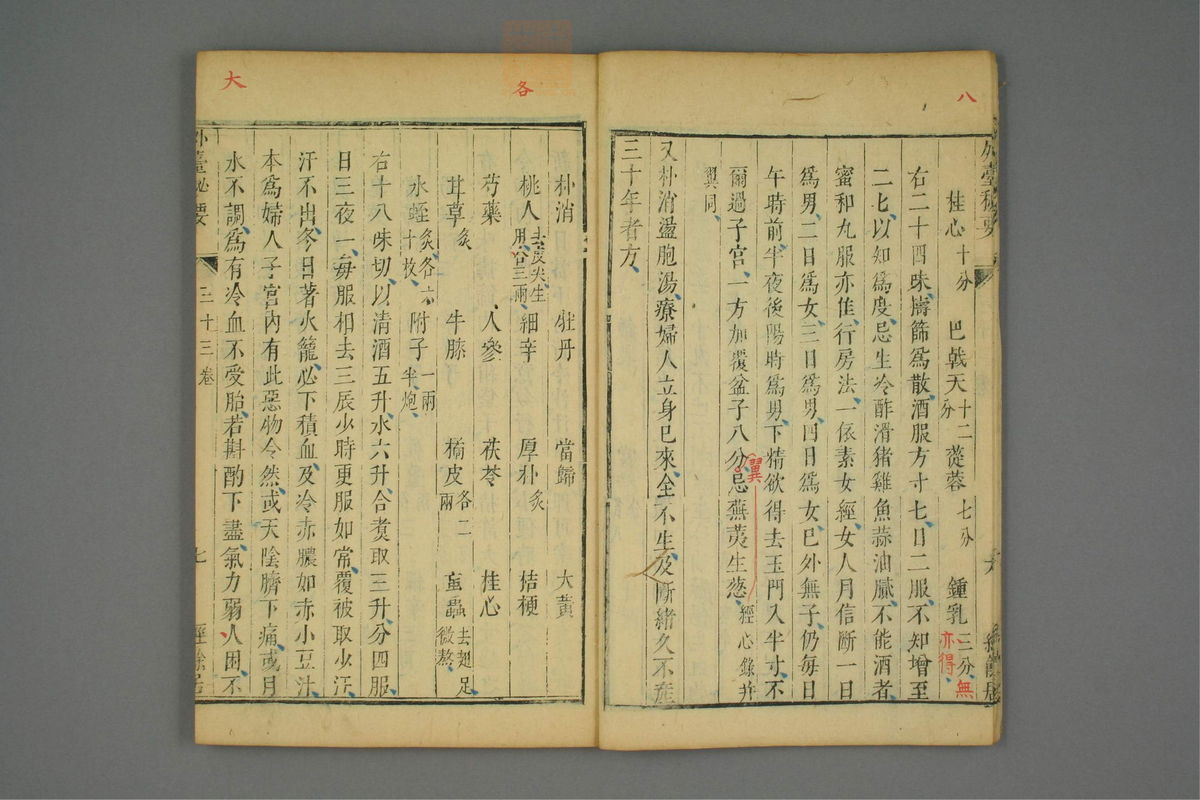 八
外臺秘要
桂心十分 巴戟天十二分 蓯蓉七分 鍾乳三分無亦得
右二十四味擣篩爲散酒服方寸匕日二服不知增至
二匕以知爲度忌生冷酢滑猪雞魚蒜油膩不能酒者
蜜和丸服亦佳行房法一依素女經女人月信斷一日
爲男二日爲女三日爲男四日爲女巳外無子仍每日
午時前半夜後陽時爲男下精欲得去玉門入半寸不
爾過子宮一方加覆盆子八分忌蕪荑生葱經心錄幷
翼
翼同
又朴消盪胞湯療婦人立身巳來全不生及斷緒久不產
三十年者方
各
朴消 牡丹 當歸 大黃
桃人去皮尖生用各三兩 細辛 厚朴炙 桔梗
芍藥 人參 茯苓 桂心
甘草炙 牛膝 橘皮各二兩 䖟蟲去翅足微熬
水蛭炙各六十枚 附子一兩半炮
右十八味切以清酒五升水六升合煑取三升分四服
日三夜一每服相去三辰少時更服如常覆被取少汗
汗不出冬日著火籠必下積血及冷赤膿如赤小豆汁
本爲婦人子宮內有此惡物令然或天陰臍下痛或月
水不調爲有冷血不受胎若斟酌下盡氣力弱人困不
大
外臺秘要 三十三卷 七 經餘居